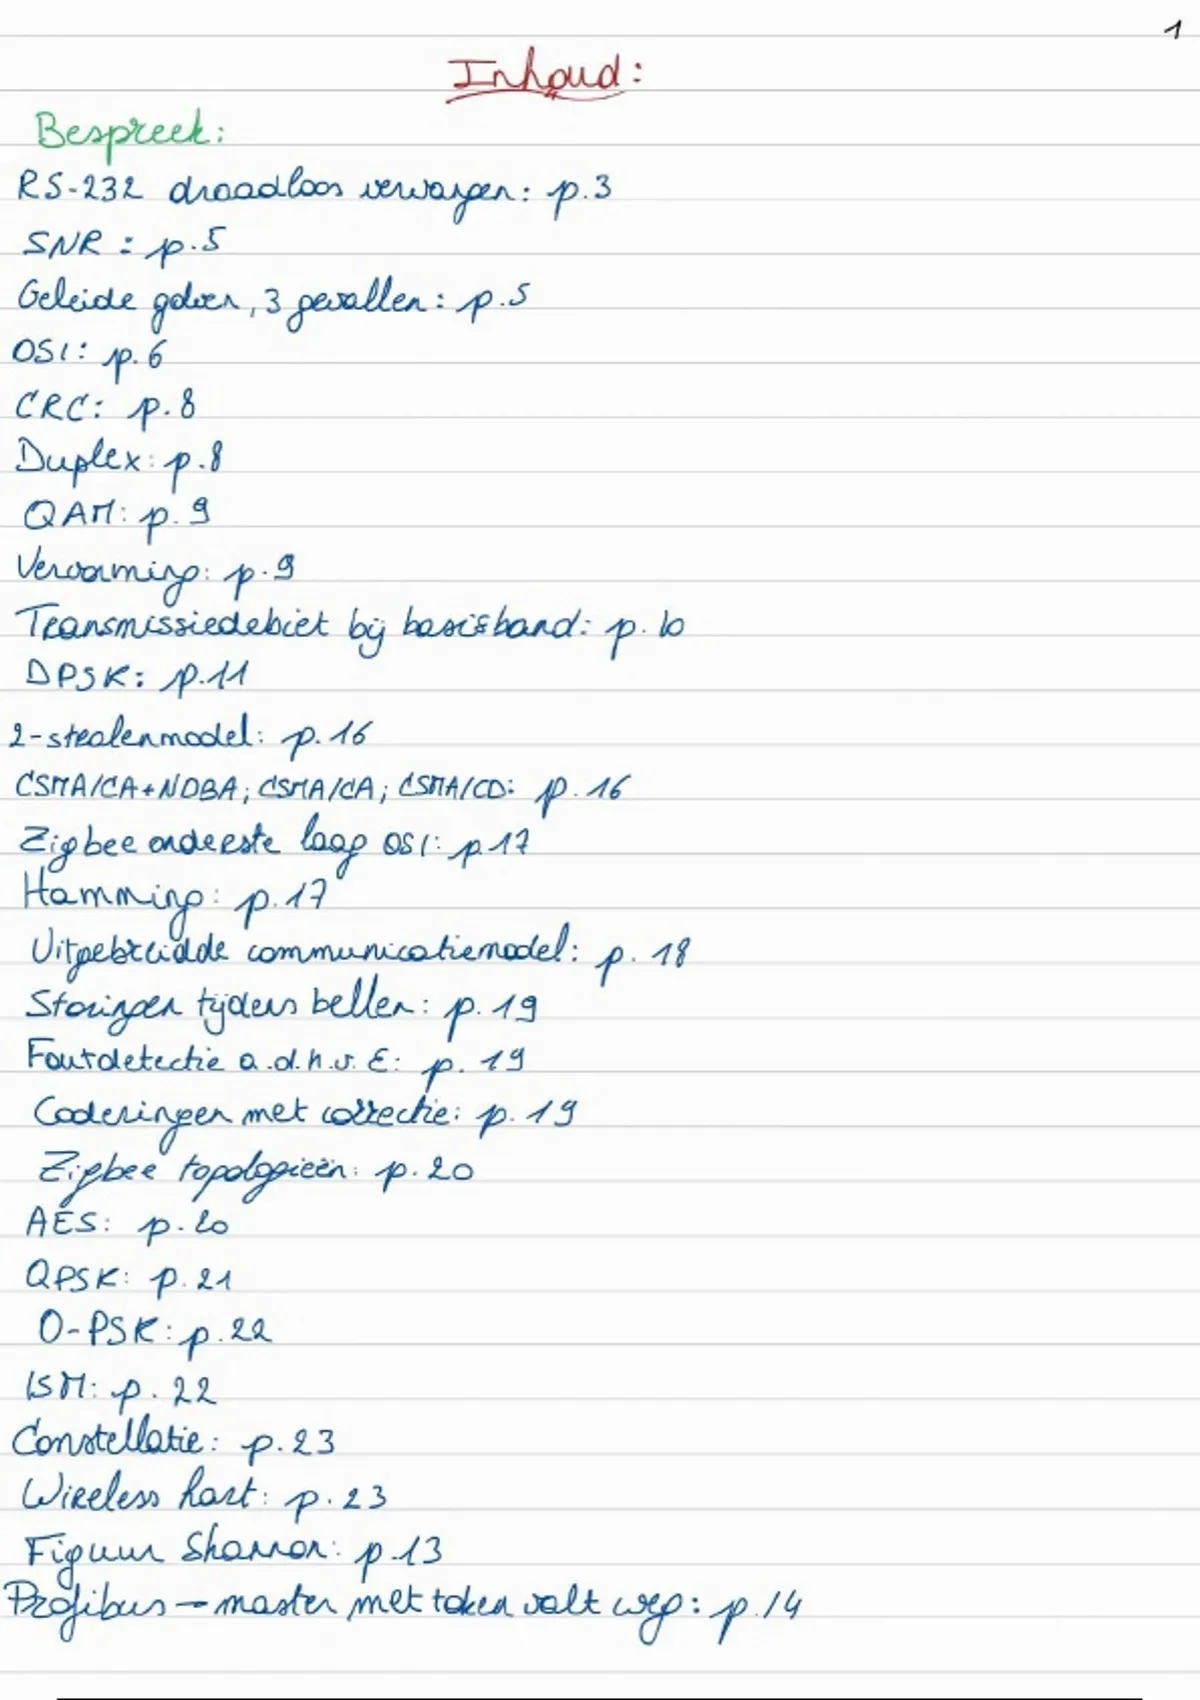 1
Inhoud:
Bespreek:
RS-232 draadloos vervangen: p.3
SNR: p.5
Geleide golven, 3 gevallen: p.5
OSI: p.6
CRC: p.8
Duplex: p.8
QAM: p.9
Vervorming: p.9
Transmissiedebiet bij basisband: p.10
DPSK: p.11
2-stralenmodel: p.16
CSMA/CA+NDBA; CSMA/CA; CSMA/CD: p.16
Zigbee onderste laag OSI: p.17
Hamming: p.17
Uitgebreidde communicatiemodel: p.18
Storingen tijdens bellen: p.19
Foutdetectie a.d.h.v. E: p.19
Coderingen met correctie: p.19
Zigbee topologieën: p.20
AES: p.20
QPSK: p.21
O-PSK: p.22
ISM: p.22
Constellatie: p.23
Wireless hart: p.23
Figuur Shannon: p.13
Profibus - master met token valt weg: p.14